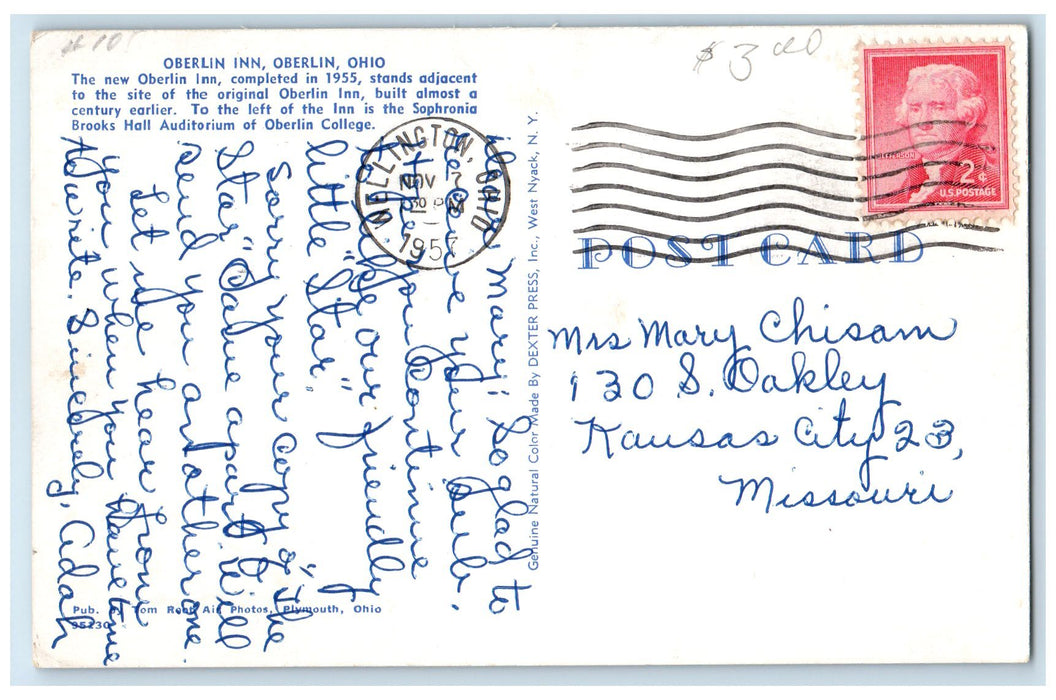 # 10
$ 3.00
OBERLIN INN, OBERLIN, OHIO
The new Oberlin Inn, completed in 1955, stands adjacent
to the site of the original Oberlin Inn, built almost a
century earlier. To the left of the Inn is the Sophronia
Brooks Hall Auditorium of Oberlin College.
WELLINGTON, OHIO
NOV 7
30 PM
1957
JEFFERSON
2¢
U.S. POSTAGE
POST CARD
Mary: So glad to
receive your sub.
Hope you continue
to like our friendly
little "Star".
Sorry your copy of "The
Star" came apart. Will
send you another one
Let me hear from
you when you have time
to write. Sincerely, Adah
Genuine Natural Color Made By DEXTER PRESS, Inc., West Nyack, N. Y.
Mrs Mary Chisam
130 S. Oakley
Kansas City 23,
Missouri
Pub. Tom Root Air Photos, Plymouth, Ohio
95230